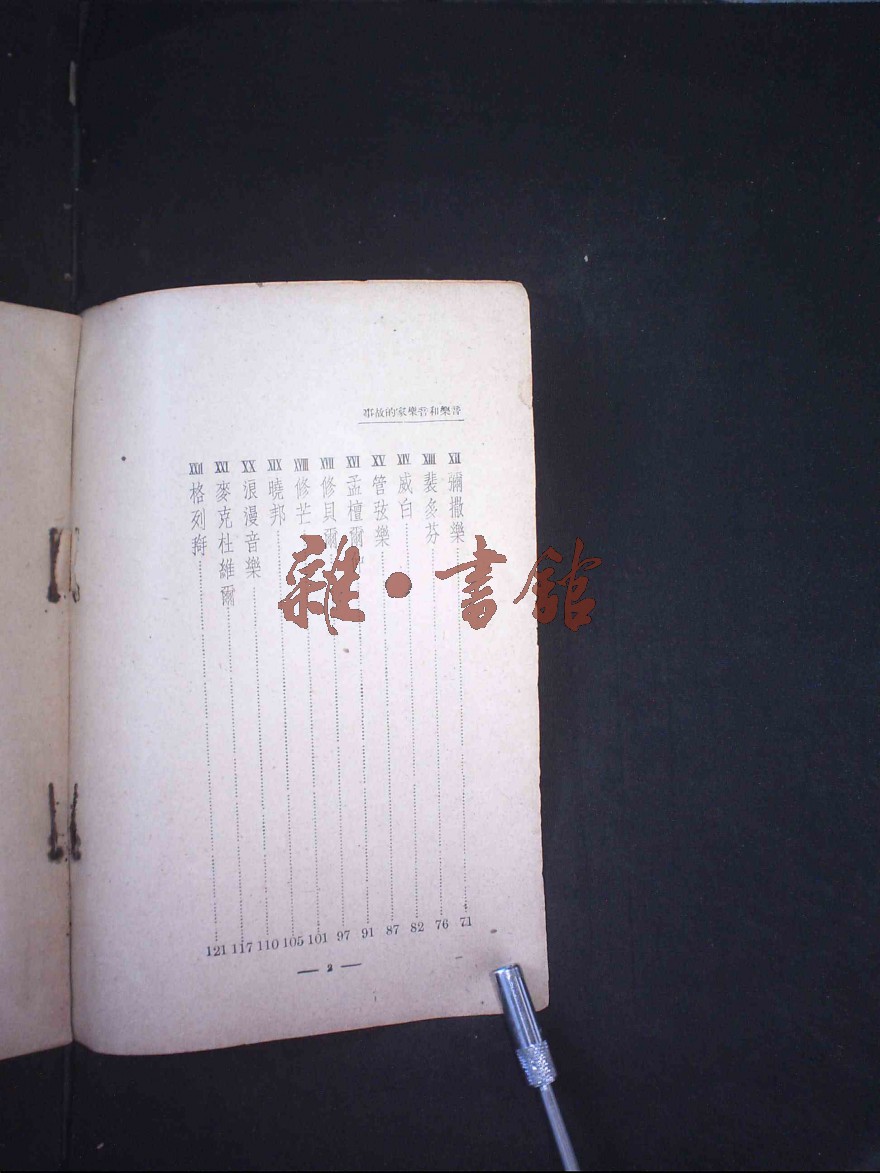 事故的家樂音和樂音
XII 彌撒樂 71
XIII 裴多芬 76
XIV 威白 82
XV 管弦樂 87
XVI 孟檀爾 91
XVII 修貝爾 97
XVIII 修芒 101
XIX 曉邦 105
XX 浪漫音樂 110
XXI 麥克杜維爾 117
XXII 格列 121
— 2 —
雜·書館